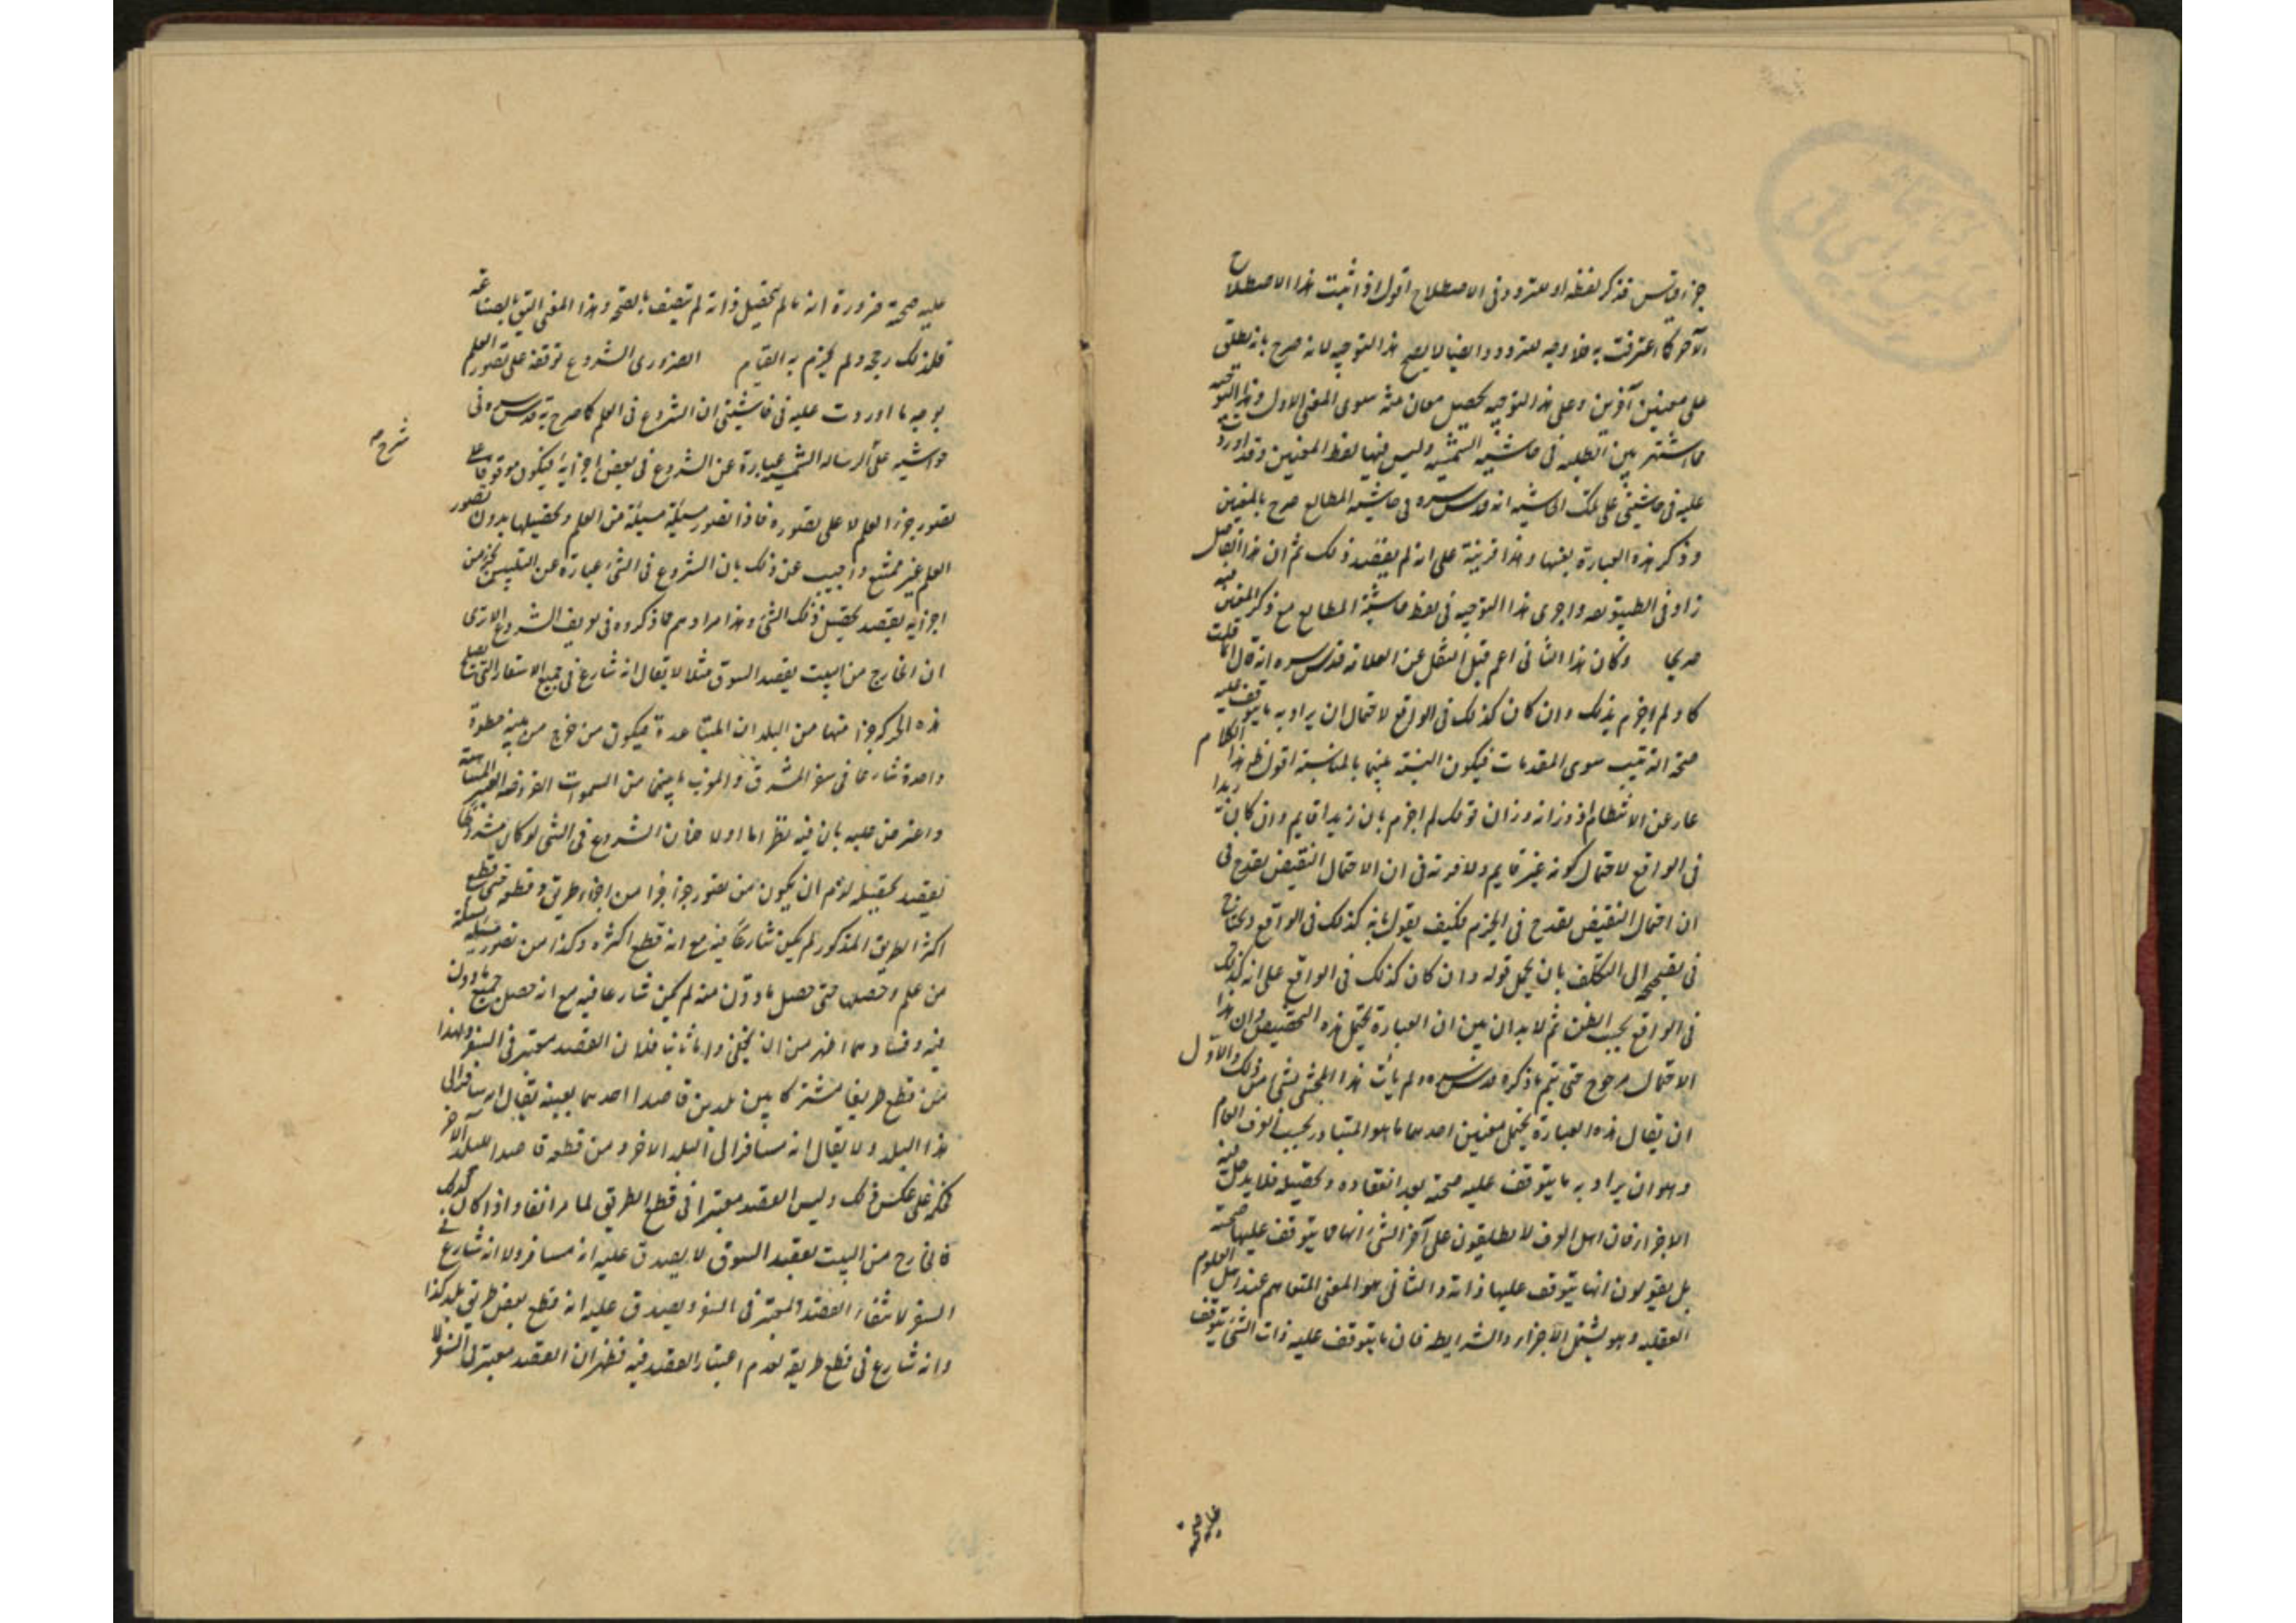 جزء قياس فذكر لفظه او لعتردد فى الاصطلاح اقول اذا ثبت هذا الاصطلاح
الآخر كما اعترفت به فلا وجه لعتردد وايضا لا يصح هذا التوجيه لانه صرح بانه يطلق
على معنيين آخرين وعلى هذا التوجيه يحصل معان ثلثة سوى المعنى الاول وهذا التوجيه
مما اشتهر بين الطلبه فى حاشيه الشمسيه وليس فيها لفظ المعنيين وقد اوردت
عليه فى حاشيتى على تلك الحاشيه انه قدس سره فى حاشيه المطالع صرح بالمعنيين
وذكر هذه العبارة بعينها وهذا قرينة على انه لم يقصد ذلك ثم ان هذا القائل
زاد فى الطنبور واجرى هذا التوجيه فى لفظ حاشية المطالع مع ذكر المعنيين فيه
صريحا وكان هذا الثانى اعم قيل النقل عن العلامة قدس سره انه قال انما قلت
كان ولم اجزم بذلك وان كان كذلك فى الواقع لاحتمال ان يراد به ما يتوقف عليه
صحة الترتيب سوى المقدمات فيكون النسبة بينهما بالمناسبة اقول ظهر هذا الكلام
عار عن الانتظام اذ وزانه وزان قولك لم اجزم بان زيدا قايم وان كان زيدا
فى الواقع لاحتمال كونه غير قايم ولا مرية فى ان الاحتمال النقيض يقدح فى
ان احتمال النقيض يقدح فى الجزم فكيف يقول بانه كذلك فى الواقع ويحتاج
فى تصحيحه الى التكلف بان يحمل قوله وان كان كذلك فى الواقع على انه كذلك
فى الواقع بحسب الظن ثم لا بد ان يبين ان العبارة يحتمل هذه التخصيص وان هذا
الاحتمال مرجوح حتى يتم ما ذكره قدس سره ولم يأت هذا المحشى بشئ من ذلك والاول
ان يقال هذه العبارة يحتمل معنيين احدهما ما هو المتبادر بحسب العرف العام
وهو ان يراد به ما يتوقف عليه صحته بعد انعقاده وتحصيله فلا يدخل فيه
الاجزاء فان اهل العرف لا يطلقون على آخر الشئ انها مما يتوقف عليها صحته
بل يقولون انها يتوقف عليها ذاته والثانى هو المعنى المتفاهم عند اهل العلوم
العقليه وهو يشتمل الاجزاء والشرايط فان ما يتوقف عليه ذات الشئ يتوقف
عليه صحته
عليه صحته ضرورة انه ما لم يتحصل ذاته لم يتصف بالصحة وهذا المعنى اليق بالصناعة
فلذلك رجحه ولم يجزم به القيام الضرورى الشروع توقفه على تصور العلم
بوجه ما اوردت عليه فى حاشيتى ان الشروع فى العلم كما صرح به قدس سره فى
شرح صح
حواشيه على الرساله الشمسيه عبارة عن الشروع فى بعض اجزايه فيكون موقوفا على
تصور جزء العلم لا على تصوره فاذا تصور مسئلة مسئلة من العلم وتحصيلها بدون تصور
العلم غير ممتنع واجيب عن ذلك بان الشروع فى الشئ عبارة عن التلبس بجزء من
اجزايه بقصد تحصيل ذلك الشئ وهذا مرادهم مما ذكروه فى تعريف الشروع الا ترى
ان الخارج من البيت بقصد السوق مثلا لا يقال انه شارع فى جميع الاسفار التى تقع
هذه الحركة جزء منها من البلدان المتباعدة فيكون من خرج من بيته خطوة
واحدة شارعا فى سفر المشرق والمغرب
واعترض عليه بان فيه نظر اما اولا فلان الشروع فى الشئ لو كان مشروطا
بقصد تحصيله لزم ان يكون من تصور جزء جزء من اجزاء طريق وقطعه حتى قطع
اكثر الطريق المذكور لم يكن شارعا فيه مع انه قطع اكثره وكذا من تصور مسئلة مسئلة
من علم وحصل حتى حصل ما دون منه لم يكن شارعا فيه مع انه حصل جميع ما دون
فيه وفسادهما اظهر من ان يخفى واما ثانيا فلان القصد معتبر فى السفر ولهذا
من قطع طريقا مشتركا بين بلدين قاصدا احدهما بعينه يقال انه سافر الى
هذا البلد ولا يقال انه مسافر الى البلد الاخر ومن قطعه قاصدا للبلد الآخر
فكر على عكس ذلك وليس القصد معتبرا فى قطع الطريق لما مر انفا واذا كان كذلك
فالخارج من البيت بقصد السوق لا يصدق عليه انه مسافر ولا انه شارع فى
السفر لانتفاء القصد المعتبر فى السفر ويصدق عليه انه قطع بعض طريق بلد كذا
وانه شارع فى قطع طريقه لعدم اعتبار القصد فيه فظهر ان القصد معتبر فى السفر لا